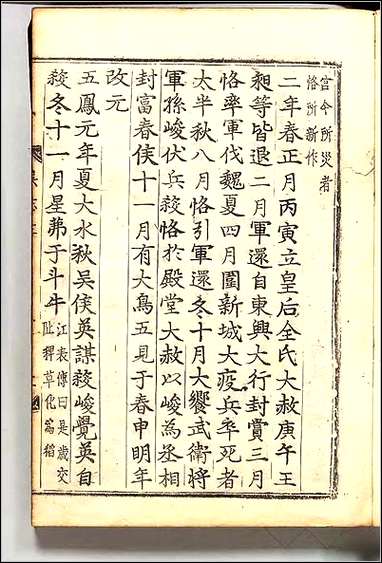 宫今所災者
恪所新作
二年春正月丙寅立皇后全氏大赦庚午王
昶等皆退二月軍還自東興大行封賞三月
恪率軍伐魏夏四月圍新城大疫兵卒死者
太半秋八月恪引軍還冬十月大饗武衞將
軍孫峻伏兵殺恪於殿堂大赦以峻爲丞相
封富春侯十一月有大鳥五見于春申明年
改元
五鳳元年夏大水秋吳侯英謀殺峻覺英自
殺冬十一月星茀于斗牛
江表傳曰是歲交
阯稗草化爲稻